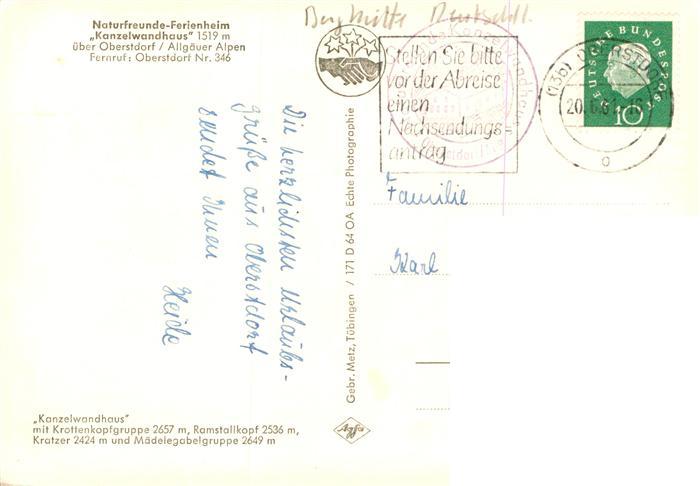 Naturfreunde-Ferienheim
„Kanzelwandhaus" 1519 m
über Oberstdorf / Allgäuer Alpen
Fernruf: Oberstdorf Nr. 346
Berghütte Deutschl.
Stellen Sie bitte
vor der Abreise
einen
Nachsendungs=
antrag
(13b) OBERSTDORF
20.6.61-16
DEUTSCHE BUNDESPOST
10
Die herzlichsten Urlaubs-
grüße aus Oberstdorf
sendet Ihnen
Heide
Gebr. Metz, Tübingen / 171 D 64 OA Echte Photographie
Familie
Karl
„Kanzelwandhaus"
mit Krottenkopfgruppe 2657 m, Ramstallkopf 2536 m,
Kratzer 2424 m und Mädelegabelgruppe 2649 m
Agfa